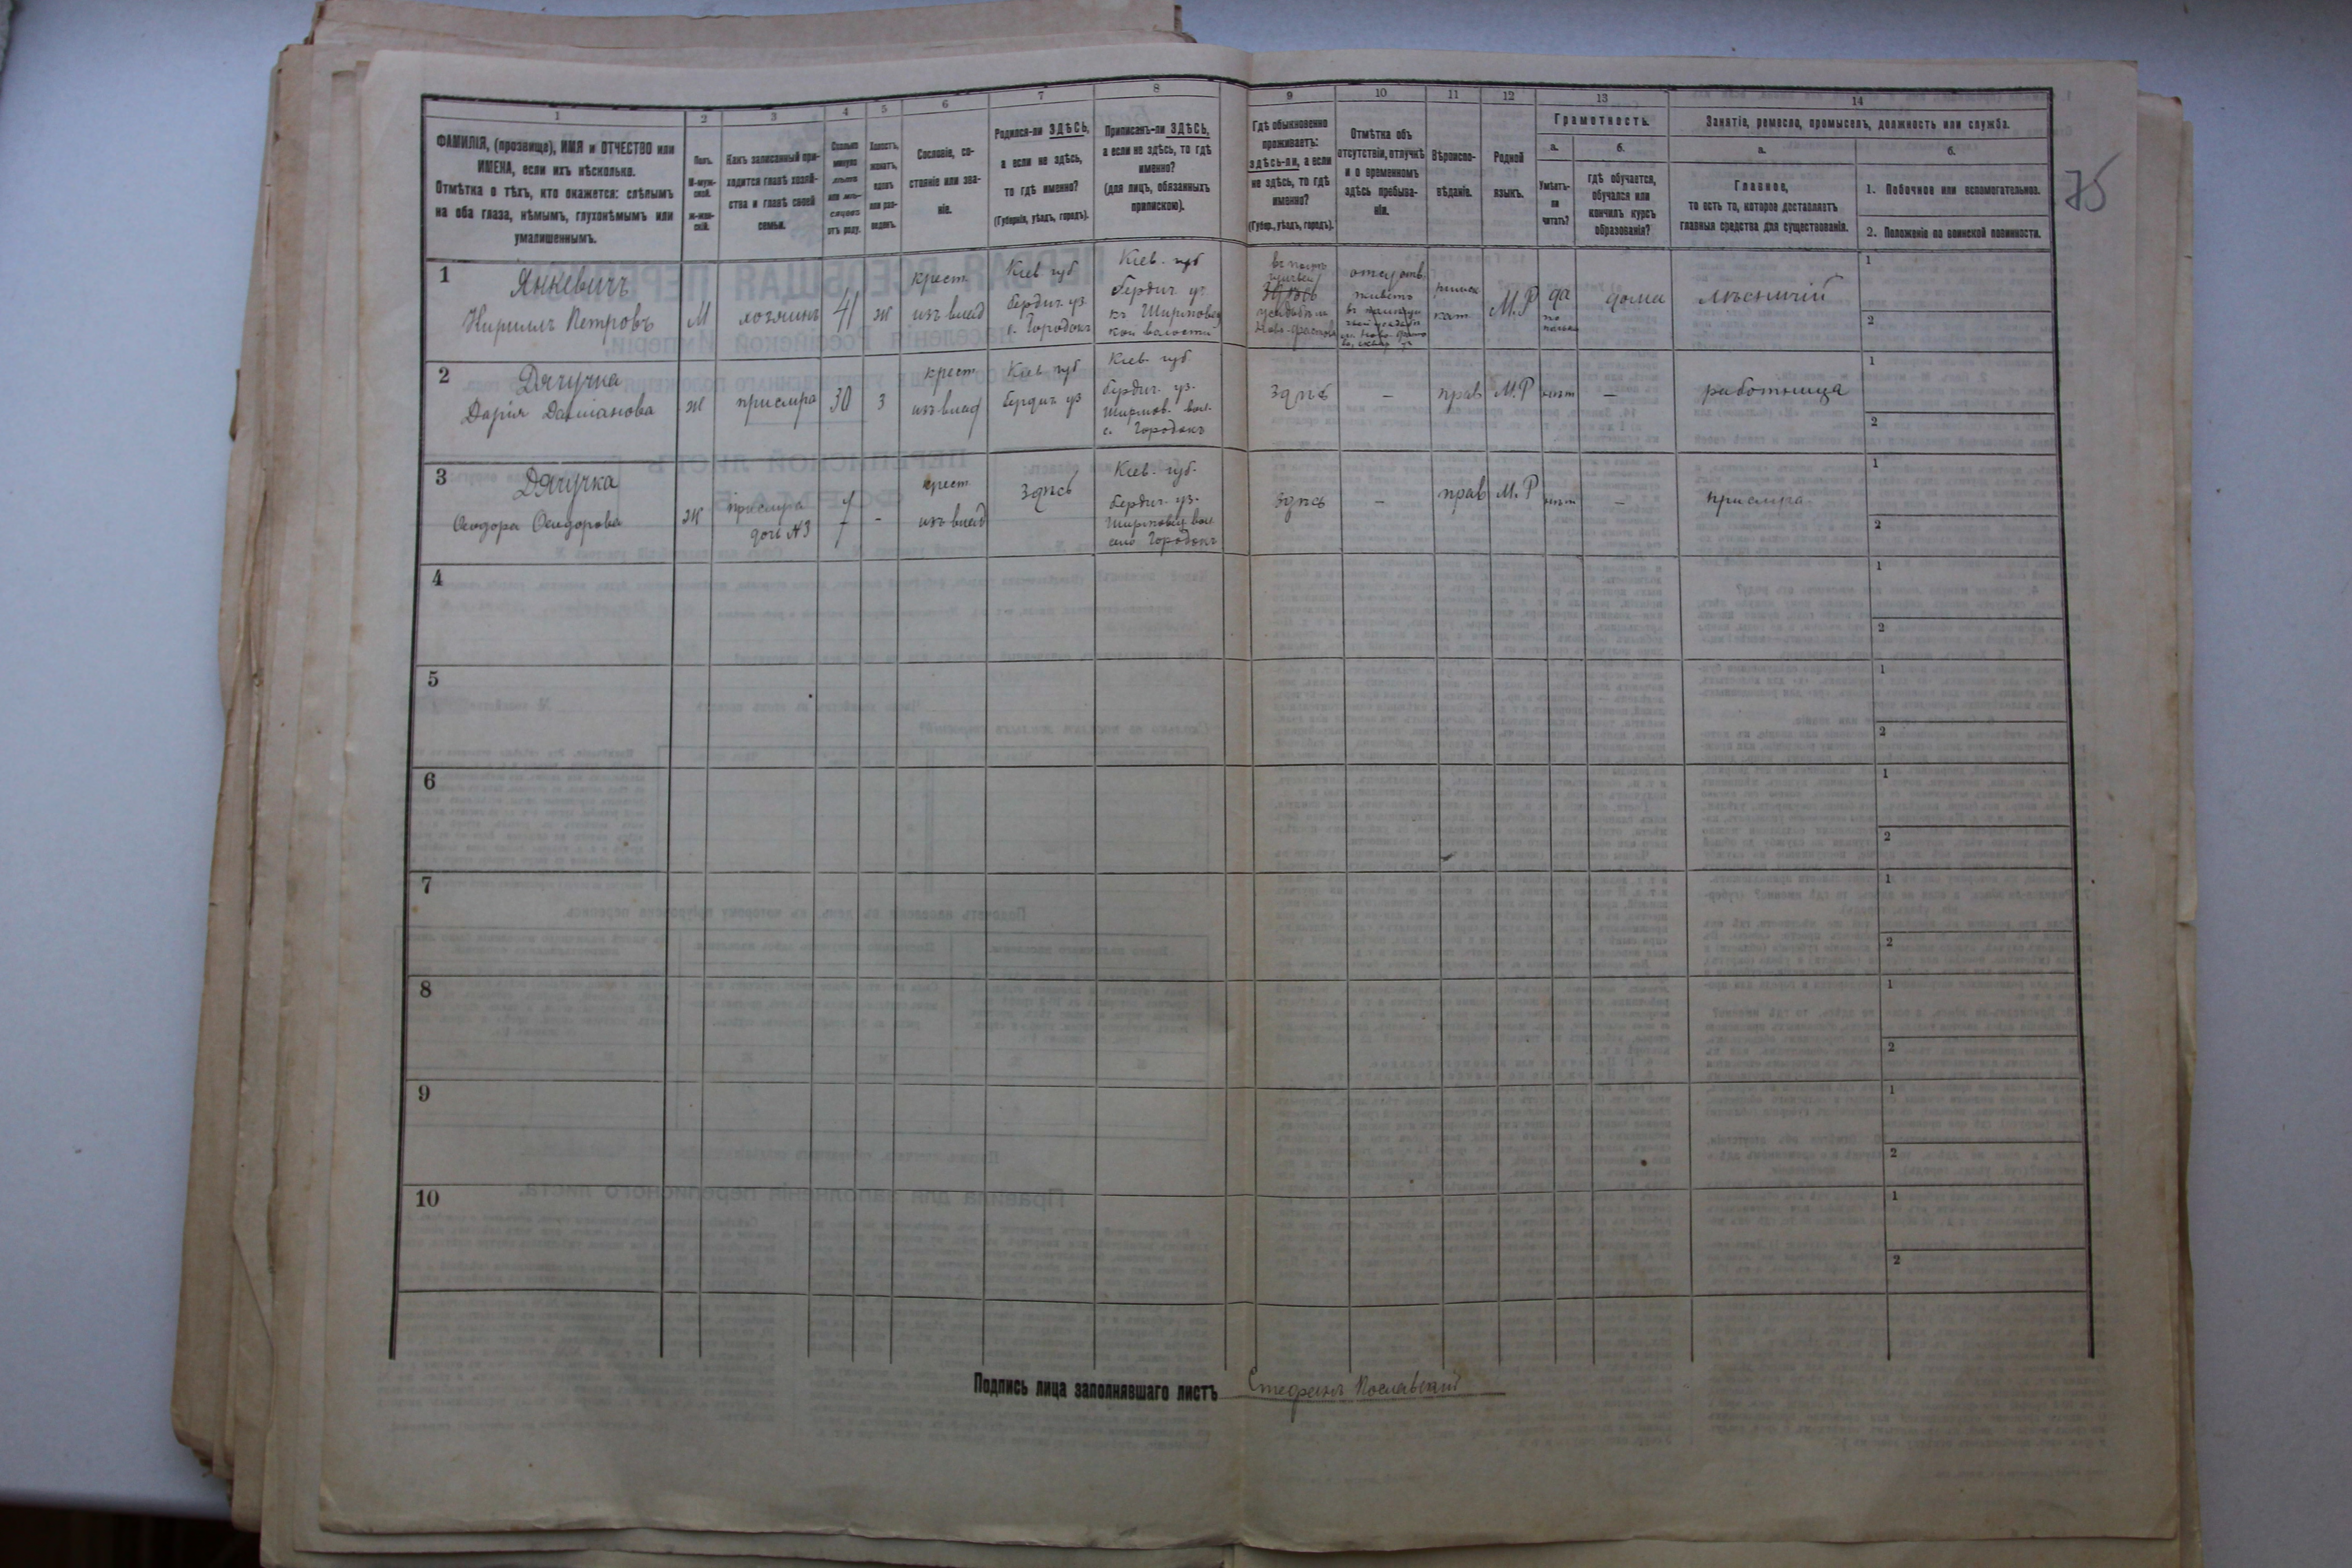 1
2
3
4
5
6
7
8
9
10
11
12
13
14
ФАМИЛІЯ, (прозвище), ИМЯ и ОТЧЕСТВО или
ИМЕНА, если ихъ нѣсколько.
Отмѣтка о тѣхъ, кто окажется: слѣпымъ
на оба глаза, нѣмымъ, глухонѣмымъ или
умалишеннымъ.
Полъ.
М-муж-
ской.
ж-жен-
скій.
Какъ записанный при-
ходится главѣ хозяй-
ства и главѣ своей
семьи.
Сколько
минуло
лѣтъ
или мѣ-
сяцевъ
отъ роду.
Холостъ,
женатъ,
вдовъ
или раз-
веденъ.
Сословіе, со-
стояніе или зва-
ніе.
Родился-ли ЗДѢСЬ,
а если не здѣсь,
то гдѣ именно?
(Губернія, уѣздъ, городъ).
Приписанъ-ли ЗДѢСЬ,
а если не здѣсь, то гдѣ
именно?
(для лицъ, обязанныхъ
припискою).
Гдѣ обыкновенно
проживаетъ:
здѣсь-ли, а если
не здѣсь, то гдѣ
именно?
(Губер., уѣздъ, городъ).
Отмѣтка объ
отсутствіи, отлучкѣ
и о временномъ
здѣсь пребыва-
ніи.
Вѣроиспо-
вѣданіе.
Родной
языкъ.
Грамотность.
а.
Умѣетъ-
ли
читать?
б.
гдѣ обучается,
обучался или
кончилъ курсъ
образованія?
Занятіе, ремесло, промыселъ, должность или служба.
а.
Главное,
то есть то, которое доставляетъ
главныя средства для существованія.
б.
1. Побочное или вспомогательное.
2. Положеніе по воинской повинности.
75
1
Янкевичъ
Кириллъ Петровъ
М
хозяинъ
41
ж
крест
изъ влад
Кіев губ
бердич. уз
с. Городокъ
Кіев. губ
бердич. уз
въ
кой волости
Здѣсь
усадьбѣ
отсутств
живетъ
въ
римск
кат
М.Р
да
по
польски
дома
лѣсничій
1
2
2
Дячучка
Дарія Даміанова
ж
прислуга
30
з
крест
изъ влад
Кіев губ
бердич. уз
Кіев губ
бердич. уз.
вол.
с. Городокъ
здѣсь
–
прав
М.Р
нѣт
–
работница
1
2
3
Дячучка
Ѳеодора Ѳеодорова
ж
прислуга
доч N3
7
-
крест
изъ влад
Здѣсь
Кіев. губ.
бердич. уз.
вол
село Городокъ
здѣсь
–
прав
М.Р
нѣт
–
прислуга
1
2
4
1
2
5
1
2
6
1
2
7
1
2
8
1
2
9
1
2
10
1
2
Подпись лица заполнявшаго листъ
Стефанъ